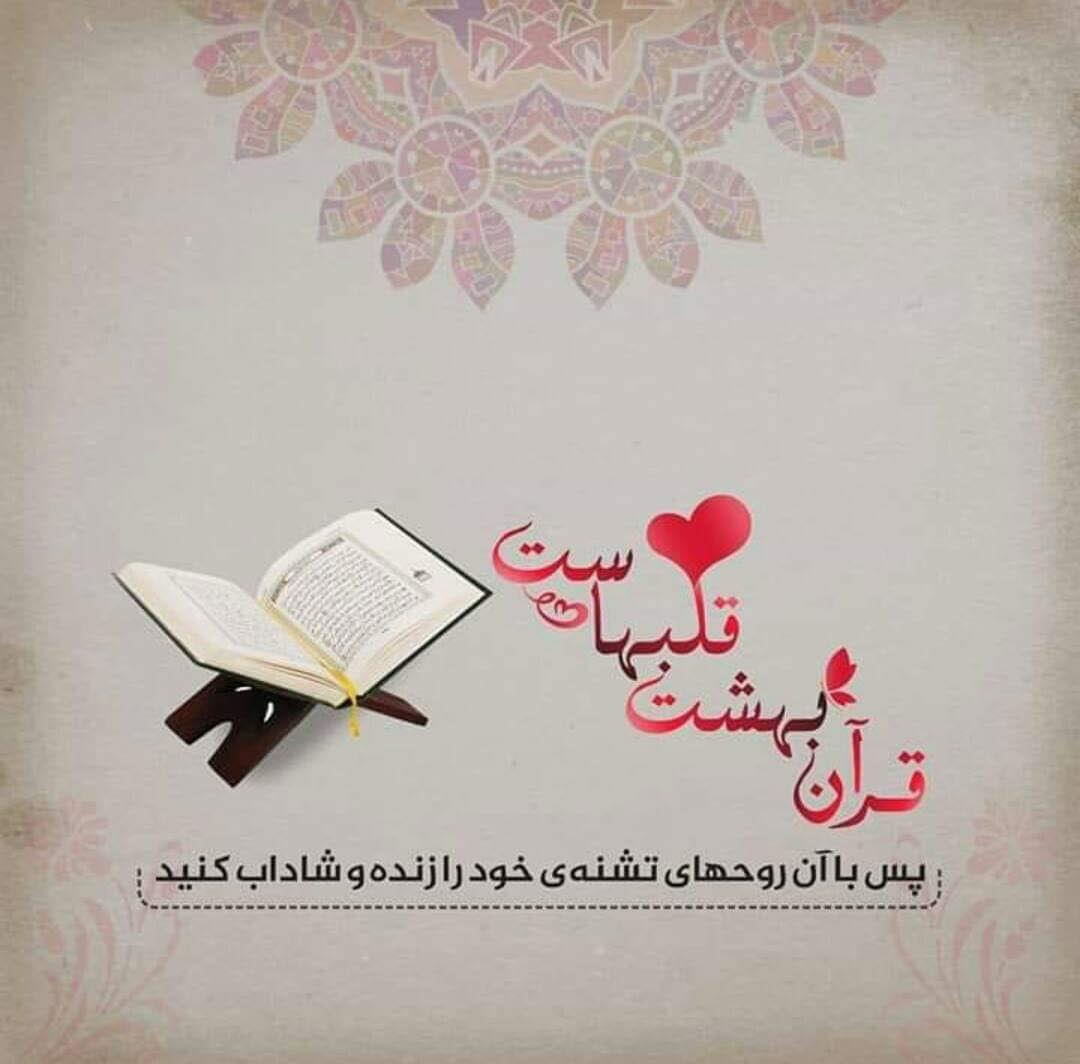 قرآن بهشت قلبهاست
پس با آن روحهای تشنه‌ی خود را زنده و شاداب کنید